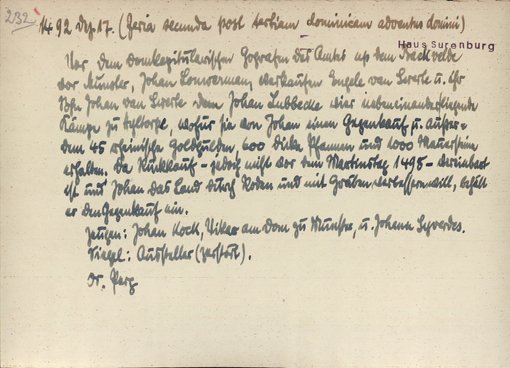 232
1492 Dez. 17. (feria secunda post tertiam dominicam adventus domini)
Haus Surenburg
Vor dem domkapitularischen Gografen des Amts up dem
vor Münster, Johan verkaufen Engele van u. ihr
Sohn Johan van dem Johan Lubbecke vier nebeneinanderliegende
Kämpe zu wofür sie von Johan einen Gegenkauf u. außer=
dem 45 rheinische Goldgulden, 600 dicke Pfannen und 1000 Mauersteine
erhalten. Da Rückkauf - jedoch nicht vor dem Martinstag 1498 - vereinbart
ist und Johan das Land durch Roden und mit Gräben verbessern will, behält
er den Gegenkauf ein.
Zeugen: Johan Kock, Vikar am Dom zu Münster, u. Johann
Siegel: Aussteller (zerstört).
Or. Perg